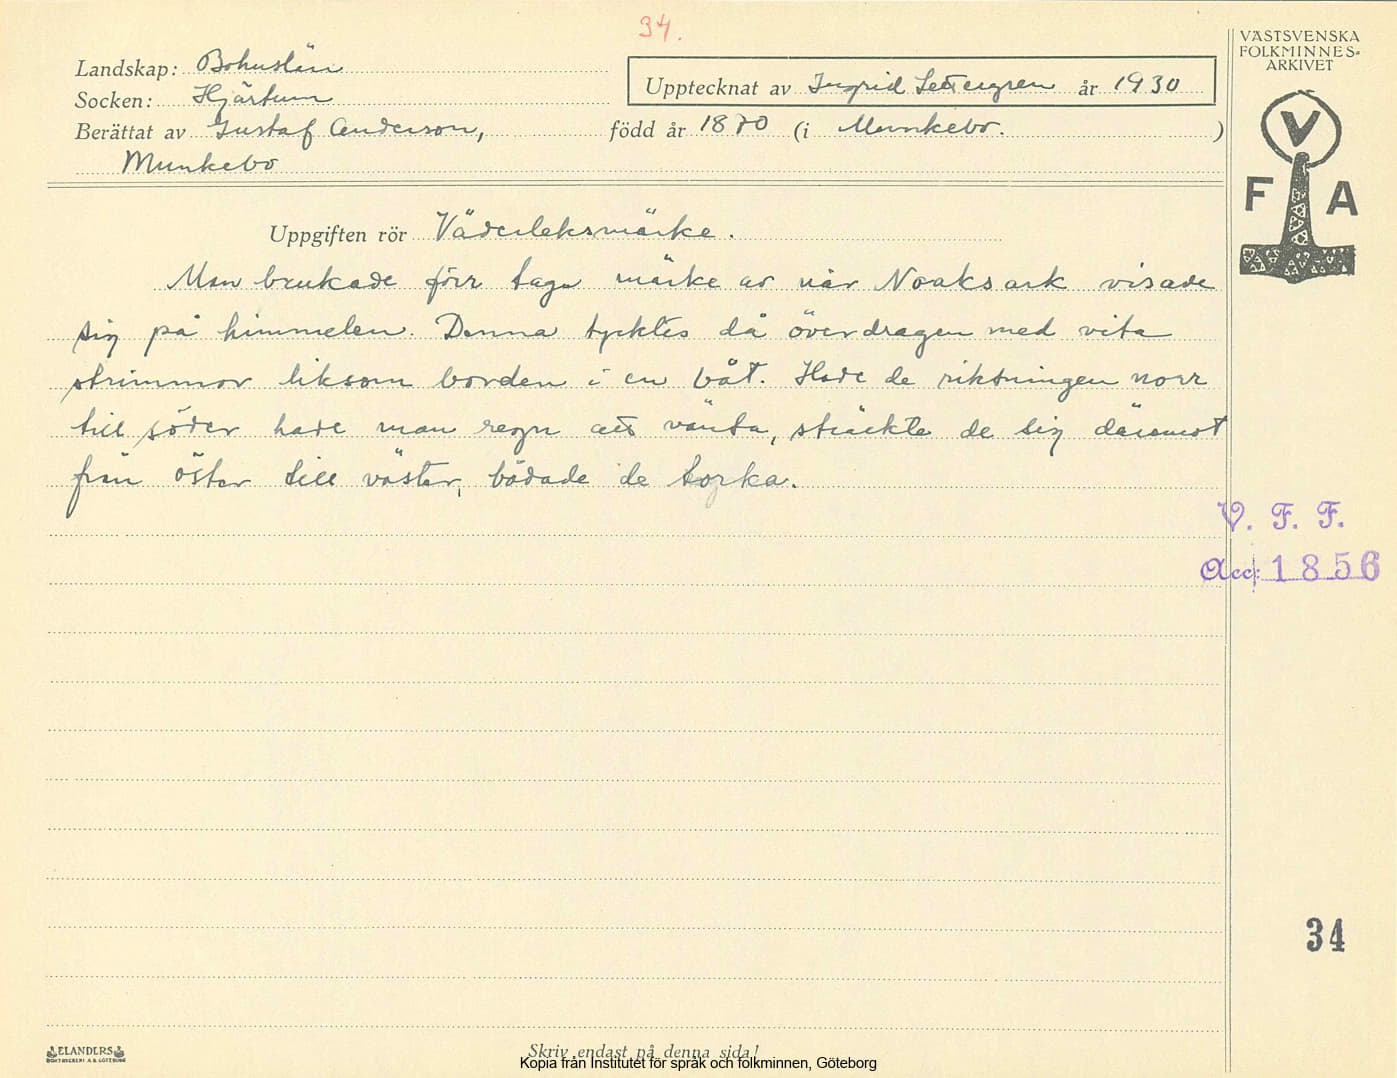 34.
VÄSTSVENSKA
FOLKMINNES-
ARKIVET
Landskap: Bohuslän
Upptecknat av Ingrid Settergren år 1930
Socken: Hjärtum
Berättat av Gustaf Anderson, född år 1870 (i Munkebo. )
Munkebo
V
F A
Uppgiften rör Väderleksmärke.
Man brukade förr taga märke av när Noaks ark visade
sig på himmelen. Denna tycktes då överdragen med vita
strimmor liksom borden i en båt. Hade de riktningen norr
till söder hade man regn att vänta, sträckte de sig däremot
från öster till väster, bådade de torka.
V. F. F.
Acc: 1856
34
ELANDERS
BOKTRYCKERI A.B. GÖTEBORG
Skriv endast på denna sida!
Kopia från Institutet för språk och folkminnen, Göteborg